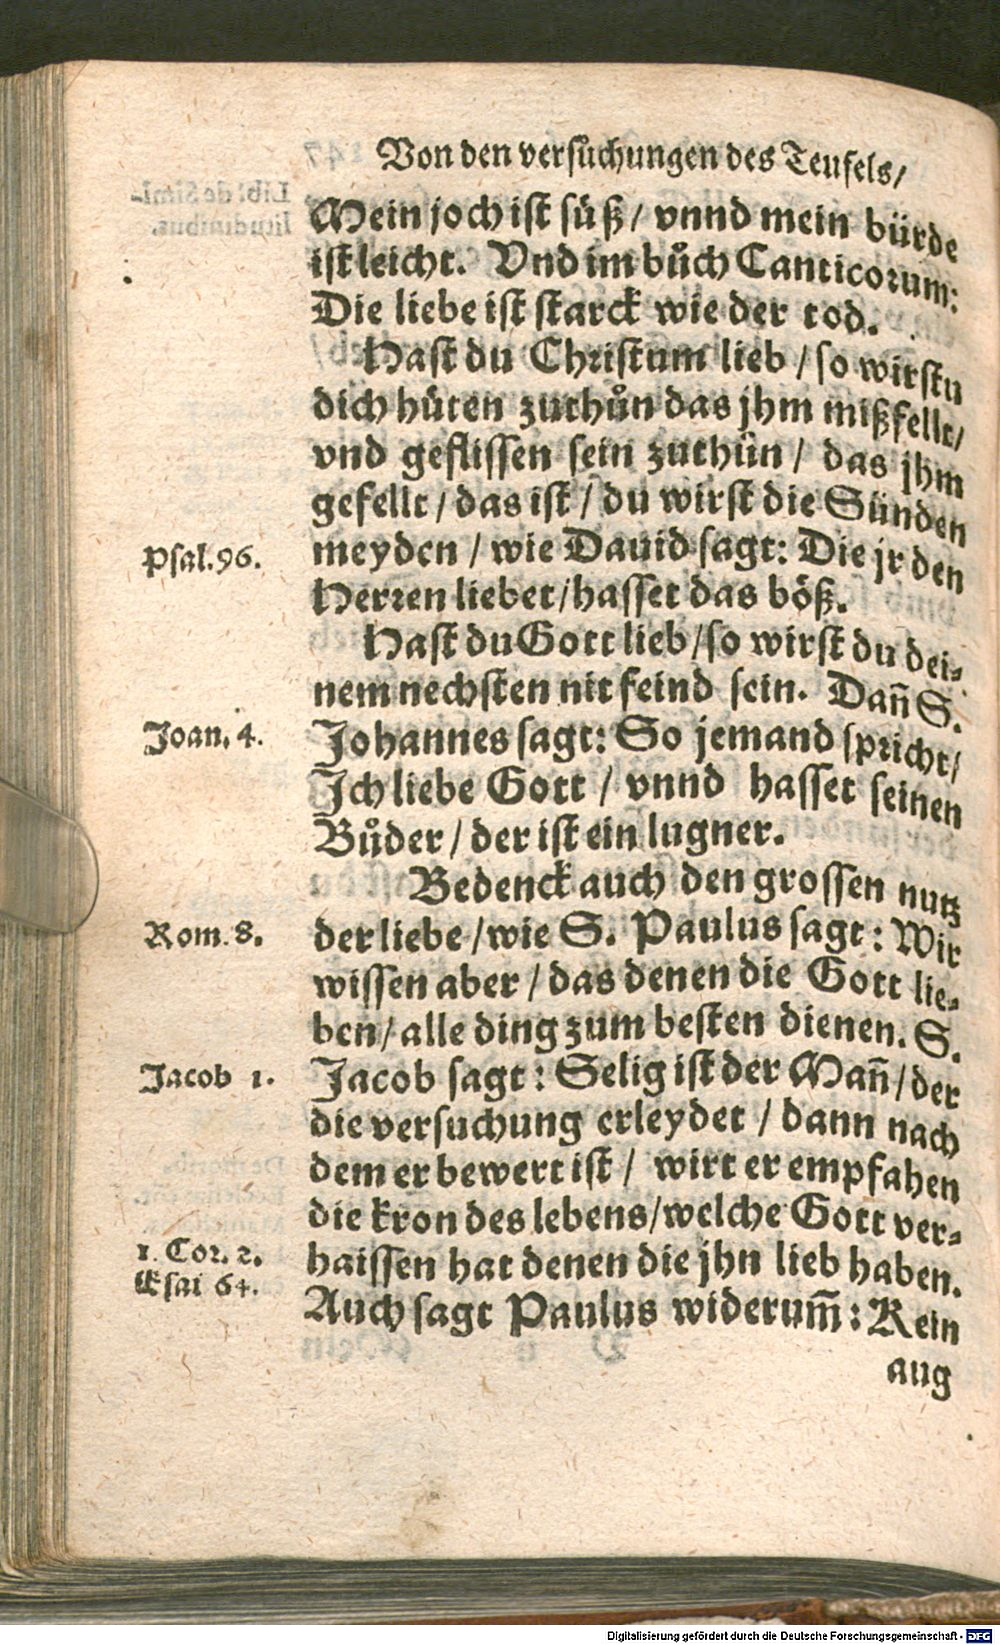 Von den versůchungen des Teufels/
Mein joch ist süß/ vnnd mein bürde
ist leicht. Vnd im bůch Canticorum:
Die liebe ist starck wie der tod.
Hast du Christum lieb / so wirstu
dich hüten zuthůn das jhm mißfellt/
vnd geflissen sein zuthün / das jhm
gefellt / das ist / du wirst die Sünden
Psal. 96. meyden / wie Dauid sagt: Die jr den
Herren liebet/hasset das böß.
Hast du Gott lieb/so wirst du dei-
nem nechsten nit feind sein. Dañ S.
Joan. 4. Johannes sagt: So jemand spricht/
Ich liebe Gott / vnnd hasset seinen
Bůder / der ist ein lugner.
Bedenck auch den grossen nutz
Rom. 8. der liebe /wie S. Paulus sagt: Wir
wissen aber / das denen die Gott lie-
ben/ alle ding zum besten dienen. S.
Jacob 1. Jacob sagt: Selig ist der Mañ/ der
die versuchung erleydet / dann nach
dem er bewert ist / wirt er empfahen
die kron des lebens/welche Gott ver-
1. Cor. 2. haissen hat denen die jhn lieb haben.
Esai 64. Auch sagt Paulus widerum̄: Kein
aug
Digitalisierung gefördert durch die Deutsche Forschungsgemeinschaft - DFG